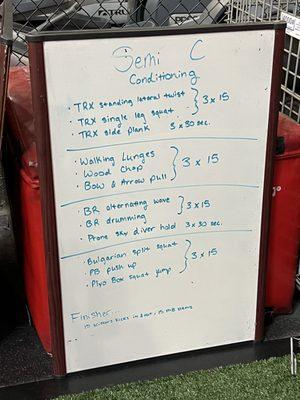 Semi C
Conditioning
· TRX standing lateral twist
· TRX single leg squat } 3 x 15
· TRX side plank 3 x 30 sec.
· Walking Lunges
· Wood Chop } 3 x 15
· Bow & Arrow pull
· BR alternating wave } 3 x 15
· BR drumming
· Prone sky diver hold 3 x 30 sec.
· Bulgarian split squat
· PB push up } 3 x 15
· Plyo Box squat jump
Finisher...
15